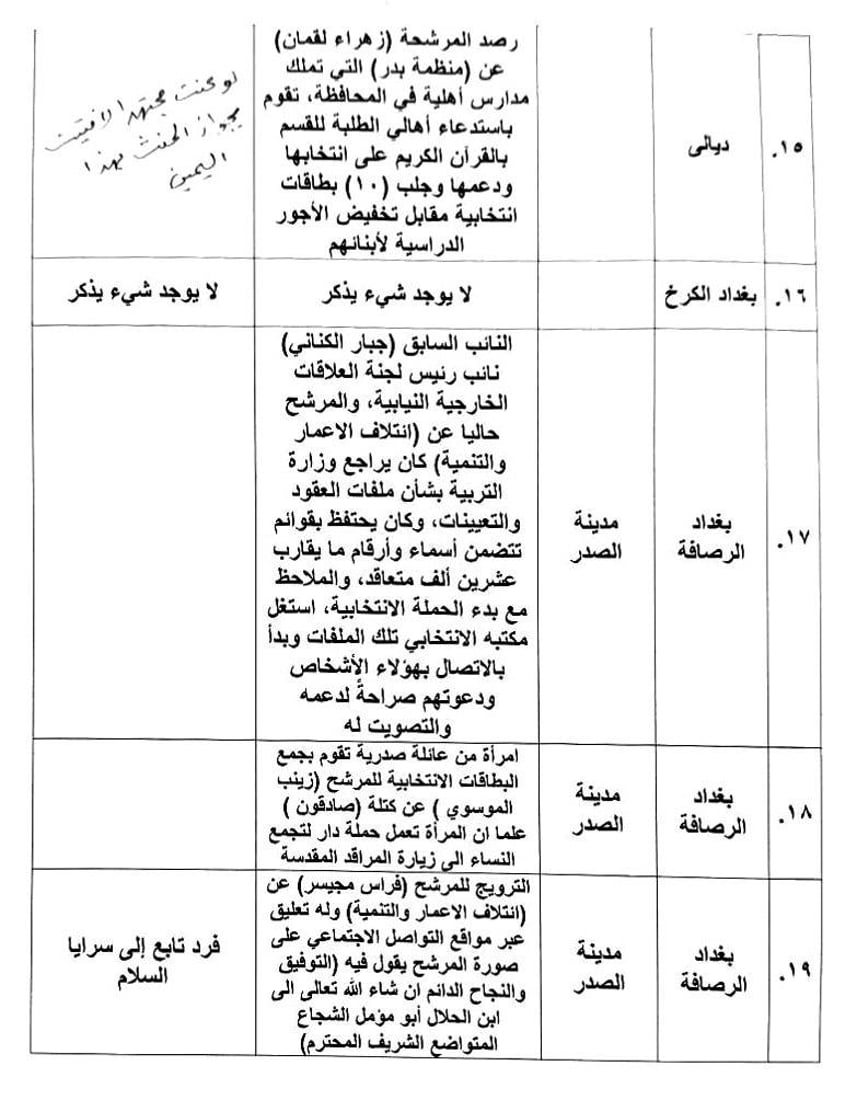 .١٥
ديالى
رصد المرشحة (زهراء لقمان)
عن (منظمة بدر) التي تملك
مدارس أهلية في المحافظة، تقوم
باستدعاء أهالي الطلبة للقسم
بالقرآن الكريم على انتخابها
ودعمها وجلب (١٠) بطاقات
انتخابية مقابل تخفيض الأجور
الدراسية لأبنائهم
لو كنت مجتهدا لافتيت
بجواز الحنث بهذا
اليمين
.١٦
بغداد الكرخ
لا يوجد شيء يذكر
لا يوجد شيء يذكر
.١٧
بغداد
الرصافة
مدينة
الصدر
النائب السابق (جبار الكناني)
نائب رئيس لجنة العلاقات
الخارجية النيابية، والمرشح
حاليا عن (ائتلاف الاعمار
والتنمية) كان يراجع وزارة
التربية بشأن ملفات العقود
والتعيينات، وكان يحتفظ بقوائم
تتضمن أسماء وأرقام ما يقارب
عشرين ألف متعاقد، والملاحظ
مع بدء الحملة الانتخابية، استغل
مكتبه الانتخابي تلك الملفات وبدأ
بالاتصال بهؤلاء الأشخاص
ودعوتهم صراحةً لدعمه
والتصويت له
.١٨
بغداد
الرصافة
مدينة
الصدر
امرأة من عائلة صدرية تقوم بجمع
البطاقات الانتخابية للمرشح (زينب
الموسوي ) عن كتلة (صادقون )
علما ان المرأة تعمل حملة دار لتجمع
النساء الى زيارة المراقد المقدسة
.١٩
بغداد
الرصافة
مدينة
الصدر
الترويج للمرشح (فراس مجيسر) عن
(ائتلاف الاعمار والتنمية) وله تعليق
عبر مواقع التواصل الاجتماعي على
صورة المرشح يقول فيه (التوفيق
والنجاح الدائم ان شاء الله تعالى الى
ابن الحلال أبو مؤمل الشجاع
المتواضع الشريف المحترم)
فرد تابع إلى سرايا
السلام